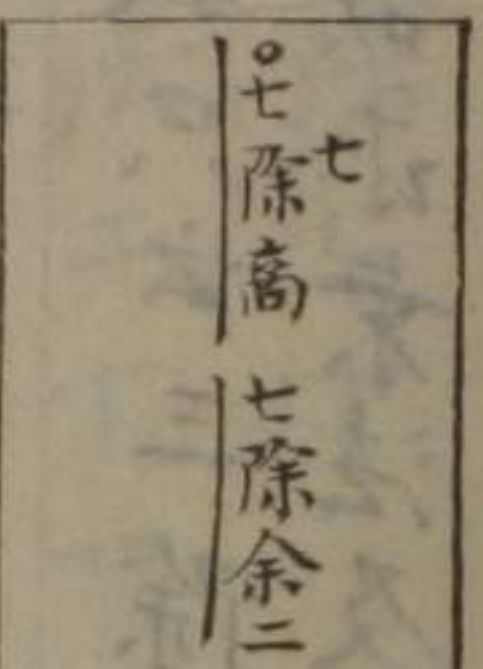 七
〇七除商 七除余二